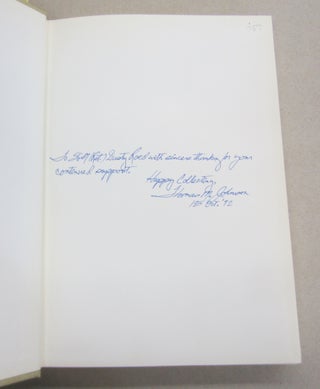 To (Ret) Dusty with sincere thinking for your
continued support.
Happy Collecting
Thomas M. Johnson
Oct. '72